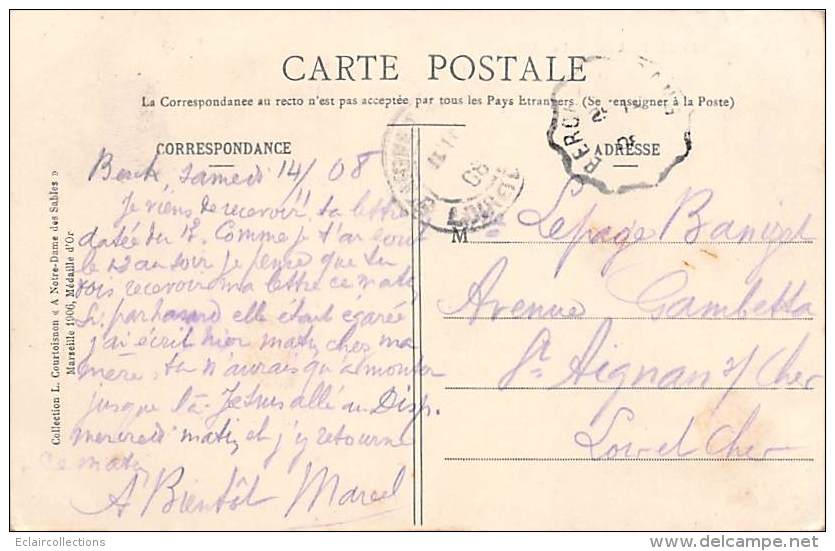 CARTE POSTALE
La Correspondance au recto n'est pas acceptée par tous les Pays Etrangers. (Se renseigner à la Poste)
CORRESPONDANCE
ADRESSE
Collection L. Courtoisnon « A Notre-Dame des Sables »
Marseille 1906, Médaille d'Or
Berck, samedi 14/ 08
Je viens de recevoir ta lettre
datée du 12. Comme je t'ai
le 12 au soir je pense que tu
vas recevoir ma lettre ce matin
Si par hasard elle était égarée
j'ai écrit hier matin chez ma
mère. tu n'aurais qu'à monter
jusque là. Je suis allé au Disp.
mercredi matin et j'y retourne
ce matin
A Bientôt Marcel
M Lepage Banizet
Avenue Gambetta
St Aignan s/ Cher
Loir et Cher
BERCK
08
Eclaircollections
www.delcampe.net